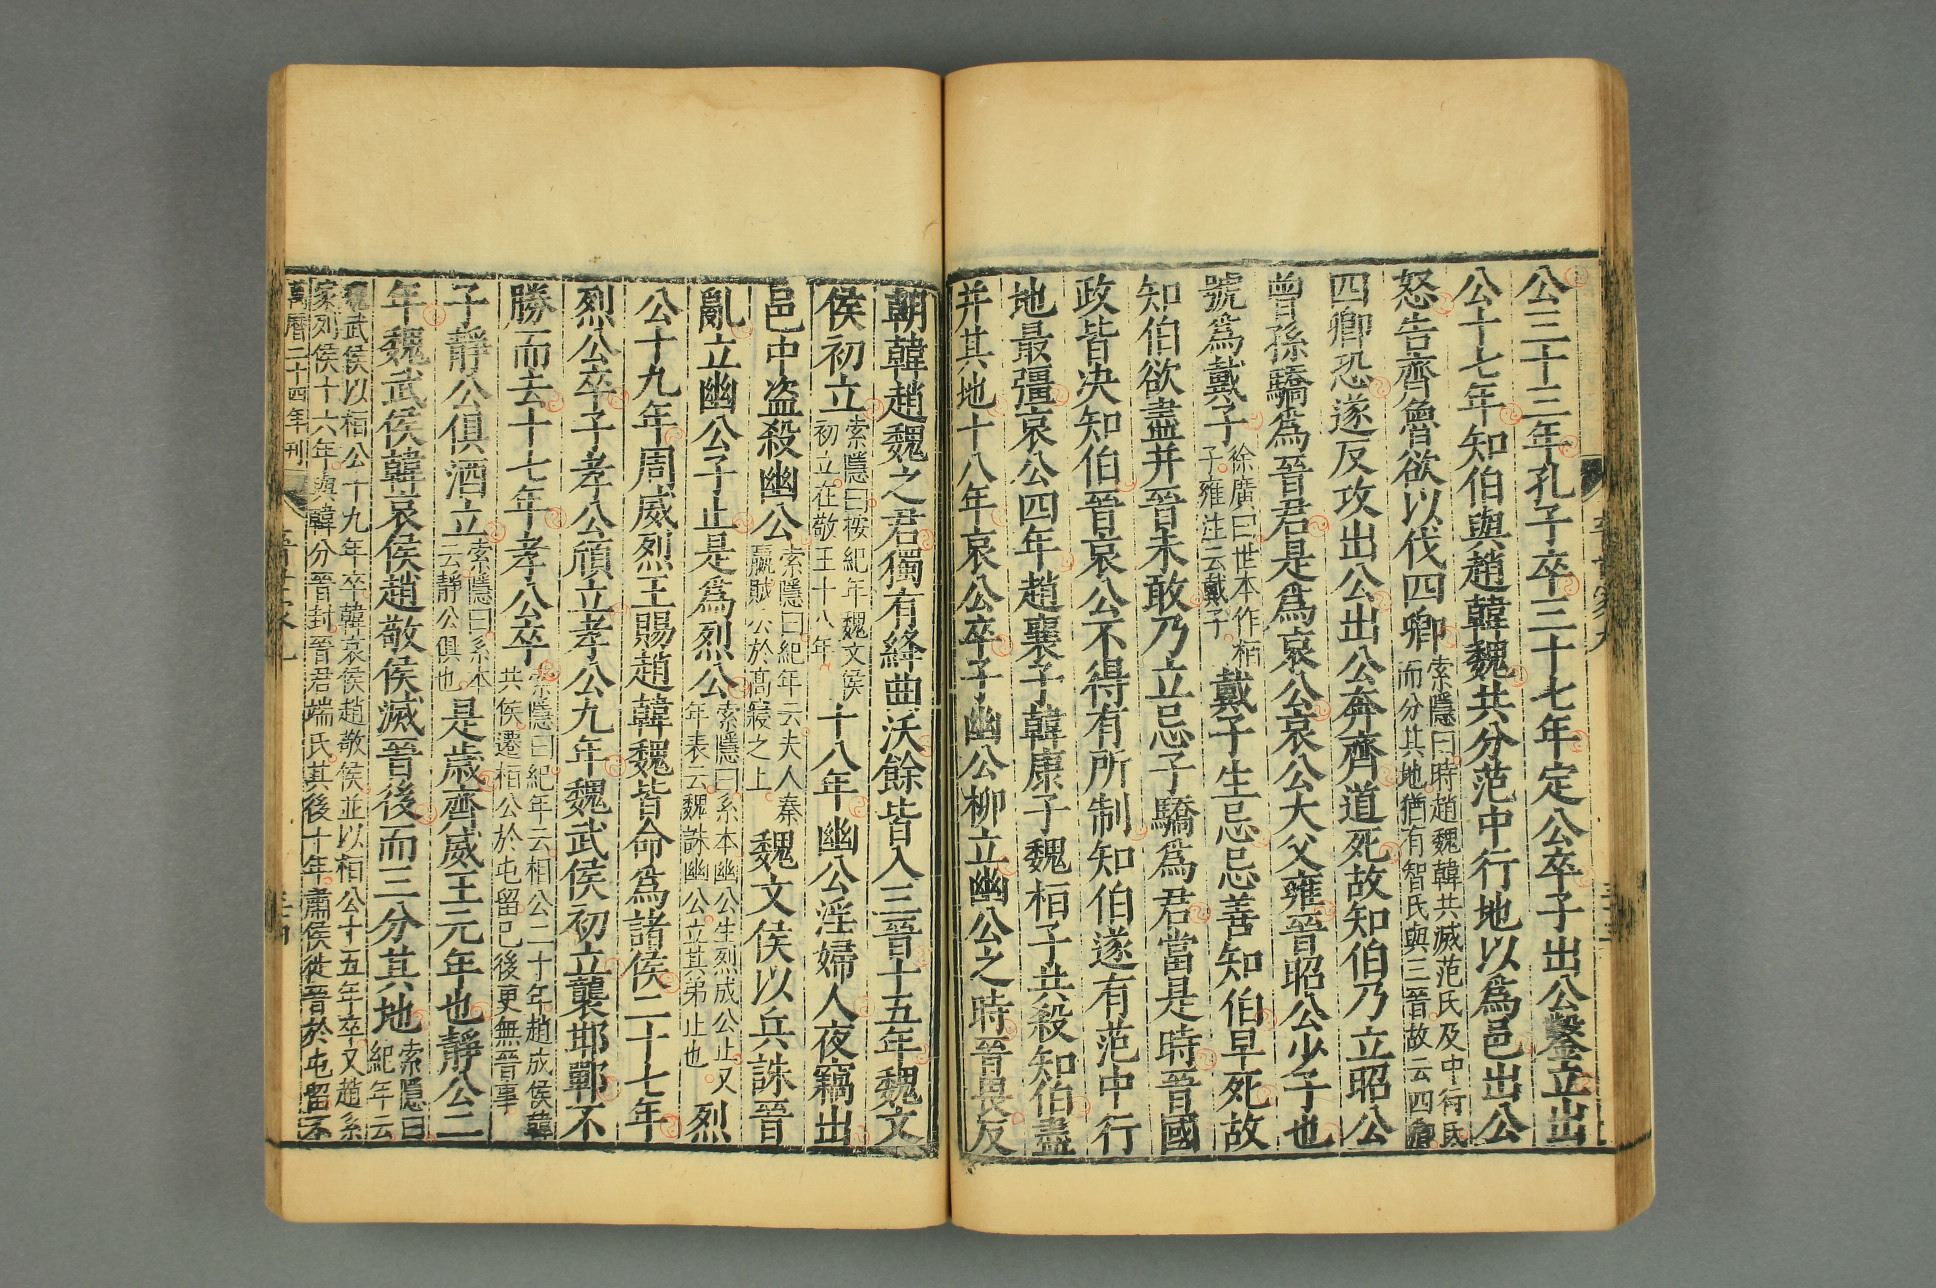 公三十三年孔子卒三十七年定公卒子出公鑿立出
公十七年知伯與趙韓魏共分范中行地以爲邑出公
怒告齊魯欲以伐四卿索隱曰時趙魏韓共滅范氏及中行氏而分其地猶有智氏與三晉故云四卿
四卿恐遂反攻出公出公奔齊道死故知伯乃立昭公
曾孫驕爲晉君是爲哀公哀公大父雍晉昭公少子也
號爲戴子徐廣曰世本作桓子雍注云戴子戴子生忌忌善知伯早死故
知伯欲盡并晉未敢乃立忌子驕爲君當是時晉國
政皆决知伯晉哀公不得有所制知伯遂有范中行
地最彊哀公四年趙襄子韓康子魏桓子共殺知伯盡
并其地十八年哀公卒子幽公柳立幽公之時晉畏反
朝韓趙魏之君獨有絳曲沃餘皆入三晉十五年魏文
侯初立索隱曰按紀年魏文侯初立在敬王十八年十八年幽公淫婦人夜竊出
邑中盗殺幽公索隱曰紀年云夫人秦嬴賊公於高寢之上魏文侯以兵誅晉
亂立幽公子止是爲烈公索隱曰系本幽公生烈成公止又年表云魏誅幽公立其弟止也烈
公十九年周威烈王賜趙韓魏皆命爲諸侯二十七年
烈公卒子孝公頎立孝公九年魏武侯初立襲邯鄲不
勝而去十七年孝公卒索隱曰紀年云桓公二十年趙成侯韓共侯遷桓公於屯留已後更無晉事
子靜公俱酒立索隱曰系本云靜公俱也是歳齊威王元年也靜公二
年魏武侯韓哀侯趙敬侯滅晉後而三分其地索隱曰紀年云
魏武侯以桓公十九年卒韓哀侯趙敬侯並以桓公十五年卒又趙系
家烈侯十六年與韓分晉封晉君端氏其後十年肅侯徙晉於屯留不
萬曆二十四年刊